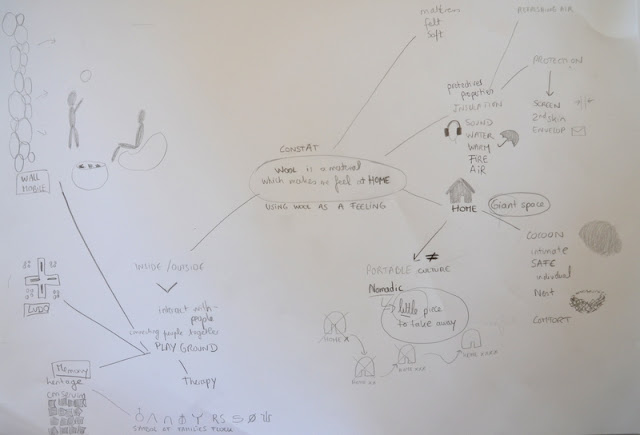 mattress
felt
soft
REFRESHING AIR
PROTECTION
SCREEN
2nd skin
ENVELOP
INSULATION
SOUND
WATER
WARM
FIRE
AIR
CONSTAT
WOOL is a material
which makes us feel at HOME
USING WOOL AS A FEELING
HOME
Giant space
COCOON
intimate
SAFE
individual
Nest
COMFORT
PORTABLE CULTURE ≠
Nomadic
little piece
to take away
INSIDE/OUTSIDE
interact with
people
connecting people together
PLAY GROUND
therapy
WALL
MOBILE
LUDO
Memory
heritage